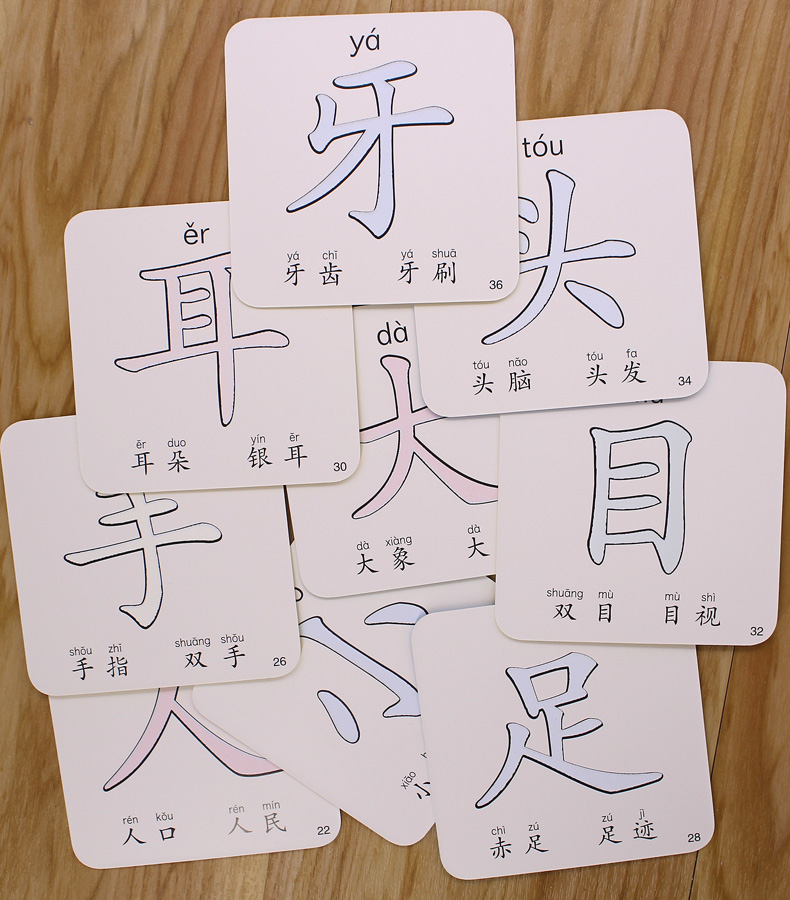 yá
牙
yá chǐ yá shuā
牙齿 牙刷
36
tóu
头
tóu nǎo tóu fa
头脑 头发
34
ěr
耳
ěr duo yín ěr
耳朵 银耳
30
dà
大
dà xiàng dà
大象 大
目
shuāng mù mù shì
双目 目视
32
手
shǒu zhǐ shuāng shǒu
手指 双手
26
小
xiǎo
小
人
rén kǒu rén mín
人口 人民
22
足
chì zú zú jì
赤足 足迹
28